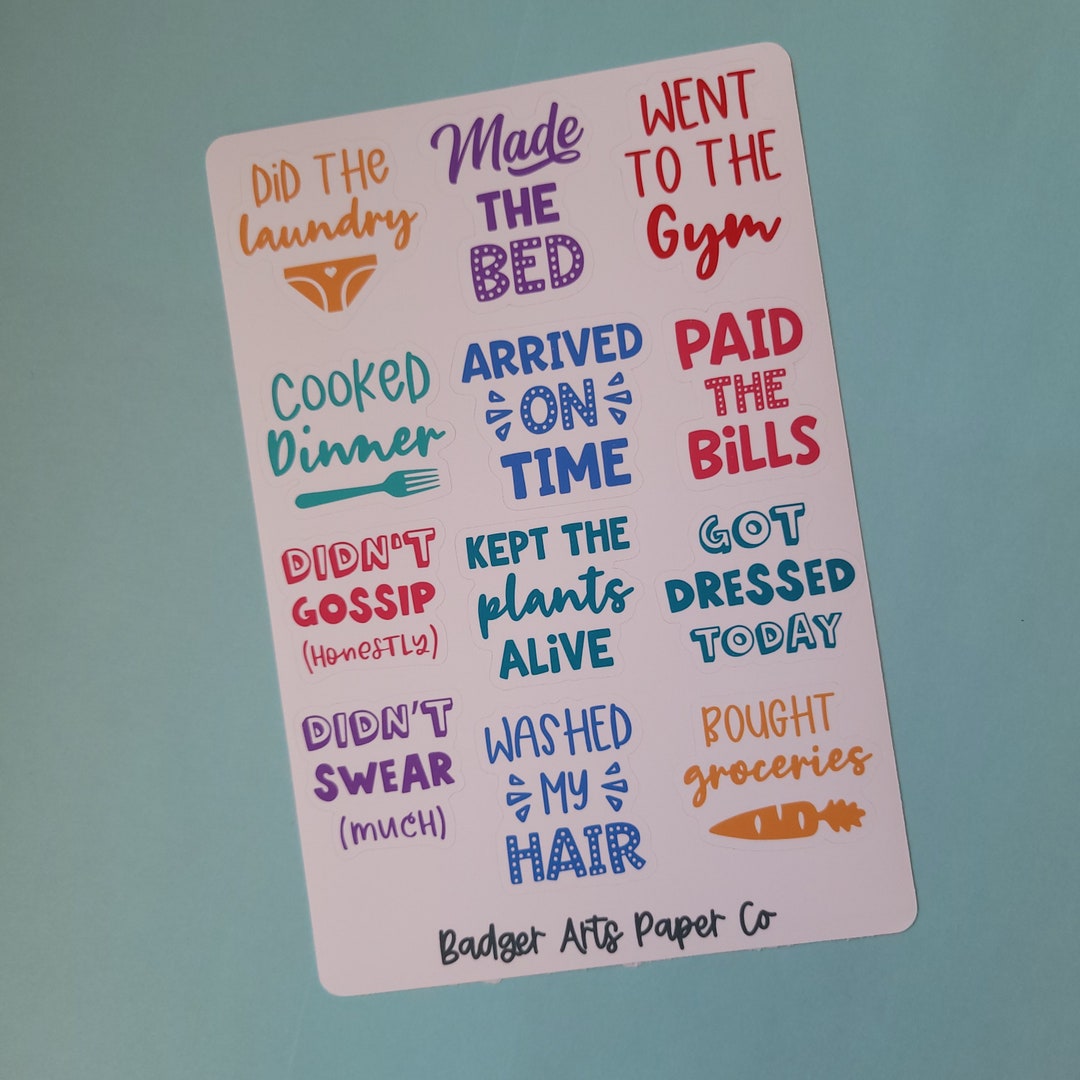 DiD THE
laundry
Made
THE
BED
WENT
TO THE
Gym
COOKED
Dinner
ARRIVED
ON
TIME
PAID
THE
BiLLS
DIDN'T
GOSSIP
(HonesTLy)
KEPT THE
plants
ALiVE
GOT
DRESSED
TODAY
DIDN'T
SWEAR
(MUCH)
WASHED
MY
HAIR
BOUGHT
groceries
Badger Arts Paper Co